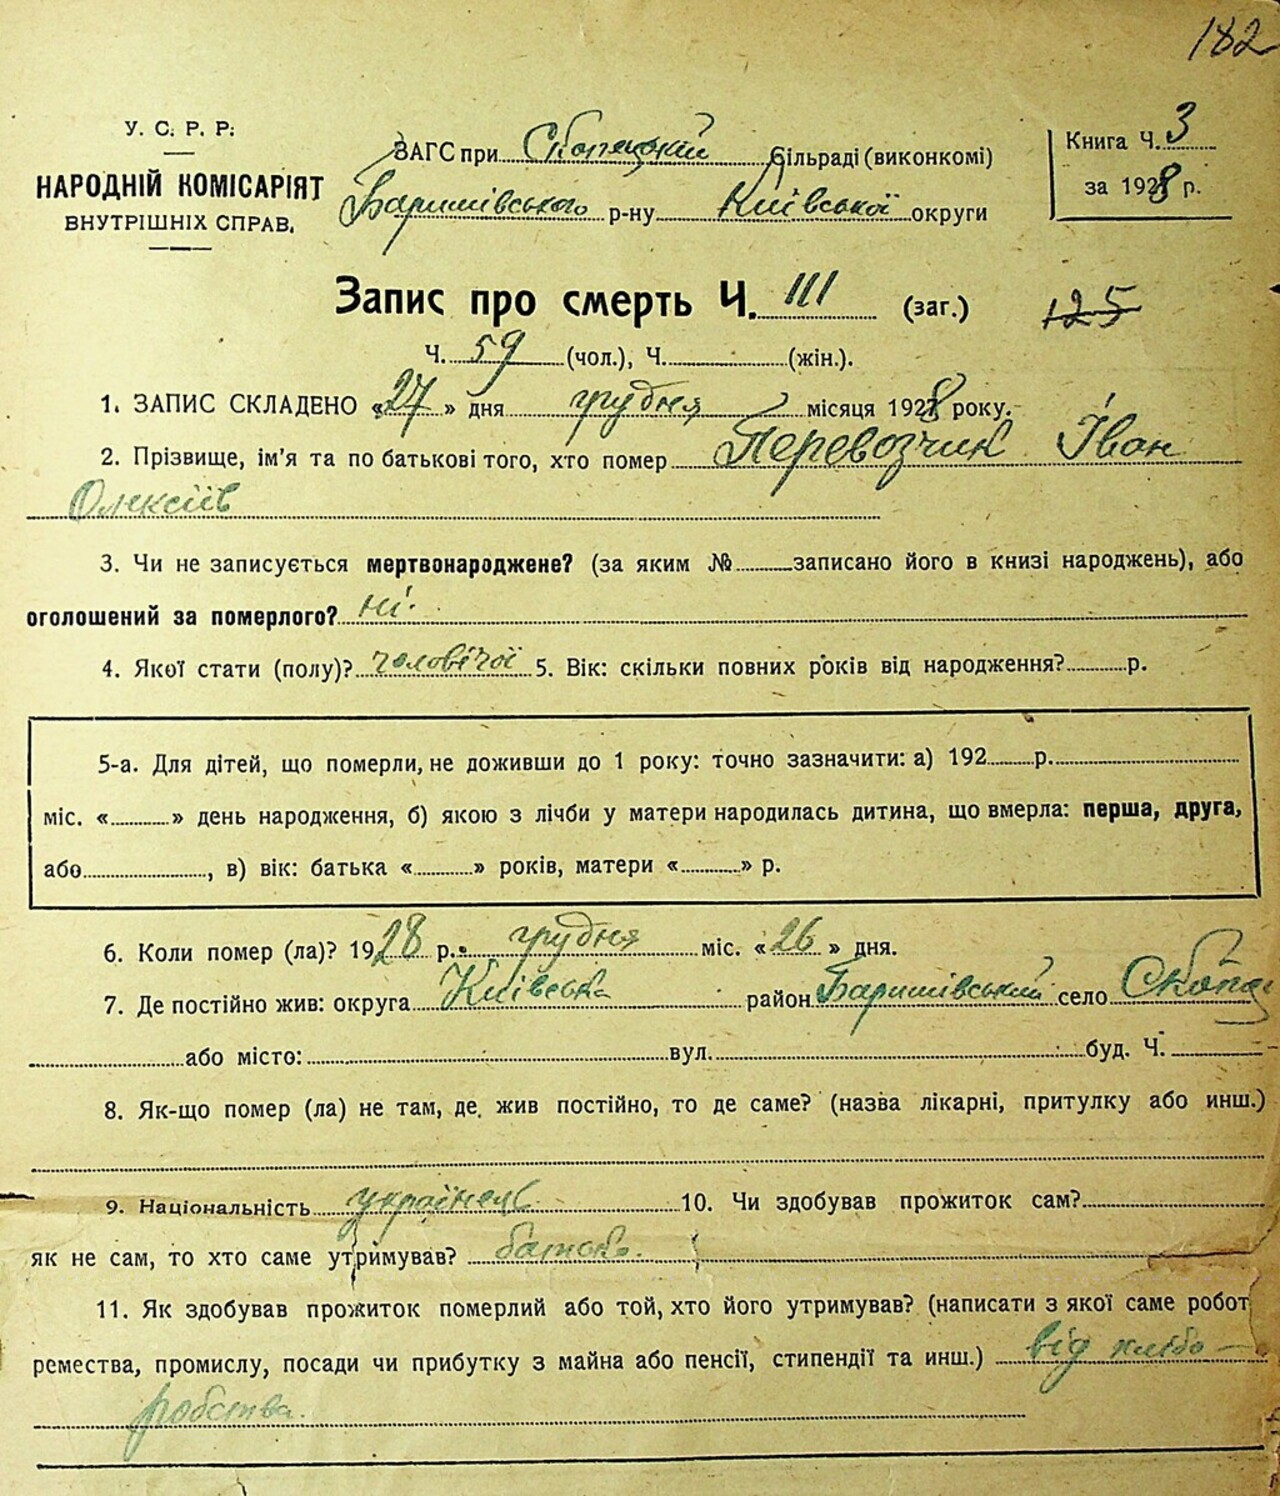 182
У. С. Р. Р.
НАРОДНІЙ КОМІСАРІЯТ
ВНУТРІШНІХ СПРАВ.
ЗАГС при Скопецькій сільраді (виконкомі)
Баришівського р-ну Київської округи
Книга Ч. 3
за 1928 р.
Запис про смерть Ч. 111 (заг.) 125
Ч. 59 (чол.), Ч. (жін.).
1. ЗАПИС СКЛАДЕНО «27» дня грудня місяця 1928 року.
2. Прізвище, ім'я та по батькові того, хто помер Перевозчик Іван
Олексіїв
3. Чи не записується мертвонароджене? (за яким № записано його в книзі народжень), або
оголошений за померлого? ні.
4. Якої стати (полу)? чоловічої 5. Вік: скільки повних років від народження? р.
5-а. Для дітей, що померли, не доживши до 1 року: точно зазначити: а) 192 р.
міс. « » день народження, б) якою з лічби у матери народилась дитина, що вмерла: перша, друга,
або , в) вік: батька « » років, матери « » р.
6. Коли помер (ла)? 1928 р. грудня міс. «26» дня.
7. Де постійно жив: округа Київська район Баришівський село Скопці
або місто: вул. буд. Ч.
8. Як-що помер (ла) не там, де жив постійно, то де саме? (назва лікарні, притулку або инш.)
9. Національність українець 10. Чи здобував прожиток сам?
як не сам, то хто саме утримував? батько.
11. Як здобував прожиток померлий або той, хто його утримував? (написати з якої саме робот
ремества, промислу, посади чи прибутку з майна або пенсії, стипендії та инш.) від хлібо-
робства.